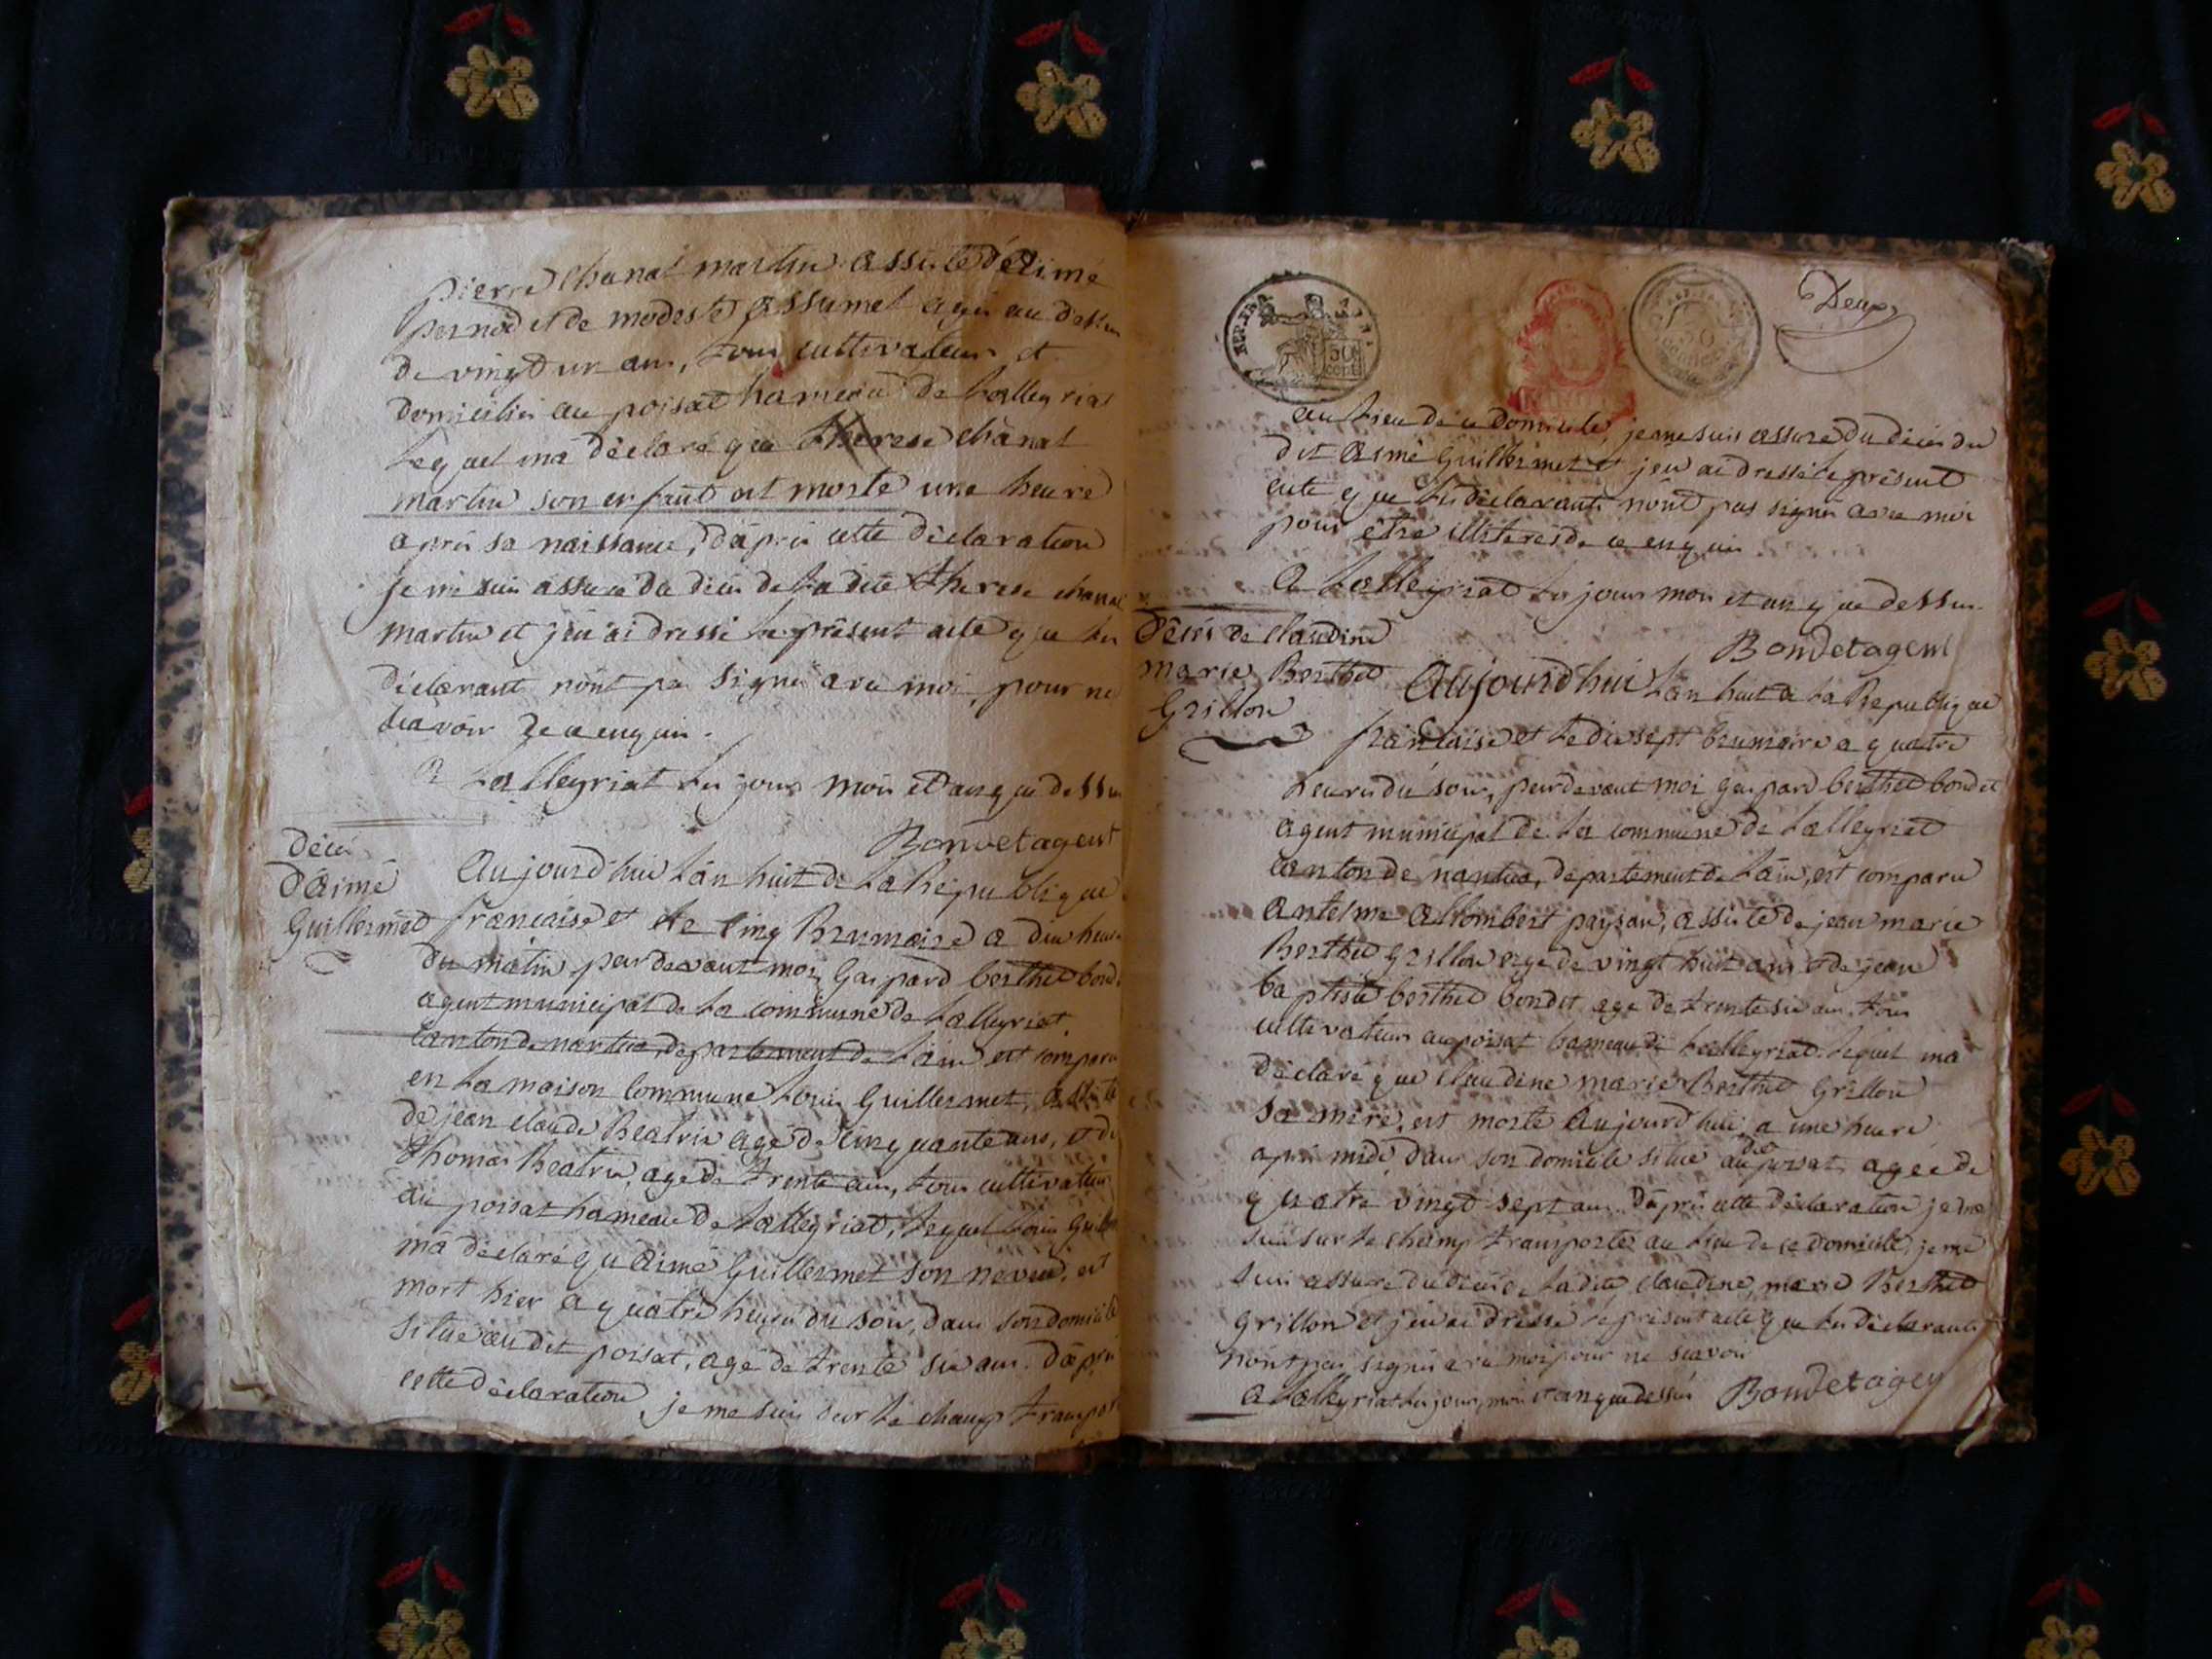 pierre Chanal martin assisté d'aimé
pernod et de modeste assumel agés au dessus
de vingt un ans, tous cultivateurs et
domiciliés au poisat hameau de Lalleyriat
Lequel ma déclaré que therese chanal
martin son enfant est morte une heure
après sa naissance, d'après cette déclaration
je me suis assuré du décès de la dite therese chanal
martin et j'en ai dressé le présent acte que les
déclarant n'ont pas signé avec moi, pour ne
sçavoir de ce enquis.
a Lalleyriat les jours mois et an que dessus
Bondet agent
Décès
D'aimé
Guillermet
Aujourd'hui L'an huit de La Republique
francaise et le cinq Brumaire a dix heures
du matin pardevant moi Gaspard berthet bondet
agent municipal de La commune de Lalleyriat,
Canton de nantua, departement de L'ain est comparu
en La maison Commune Louis Guillermet, assisté
de jean claude Beatrix agé de cinquante ans, et de
Thomas Beatrix, agé de trente ans, tous cultivateurs
au poisat hameau de Lalleyriat, Lequel Louis Guiller
m'a déclaré qu'aimé Guillermet son neveu, est
mort hier a quatre heures du soir, dans son domicile
situé au dit poisat, agé de trente six ans. D'après
cette déclaration, je me suis sur Le champ transporté
REP. FRA.
50
cent.
50
centimes
Deux
au Lieu de ce domicile, je me suis assuré du décès du
dit aimé Guillermet et j'en ai dressé le présent
acte que les déclarants n'ont pas signé avec moi
pour être illiteres de ce enquis
a Lalleyriat les jours mois et an que dessus.
Bondet agent
Décès de claudine
marie Berthet
Grillon
Aujourd'hui L'an huit de La Republique
francaise et le dix sept brumaire a quatre
heures du soir, pardevant moi gaspard berthet bondet
agent municipal de La commune de Lalleyriat
canton de nantua, departement de L'ain, est comparu
antelme allombert paysan, assisté de jean marie
Berthet Grillon agé de vingt huit ans et de jean
baptiste berthet bondet agé de trente six ans, tous
cultivateurs au poisat hameau de Lalleyriat. Lequel m'a
déclaré que claudine marie Berthet Grillon
sa mere, est morte aujourd'hui, a une heure
après midi, dans son domicile situé au dit poisat, agée de
quatre vingt sept ans. D'après cette déclaration je me
suis sur Le champ transporté au Lieu de ce domicile, je me
suis assuré du décès de La dite claudine, marie Berthet
Grillon et j'en ai dressé le présent acte que les déclarants
n'ont pas signés avec moi pour ne sçavoir
a Lalleyriat les jours, mois et an que dessus Bondet agen